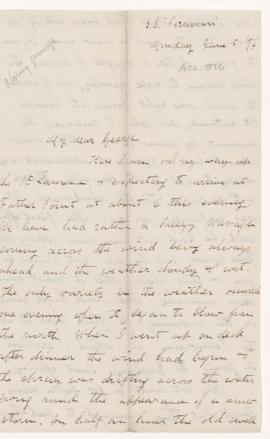 S.S. "Peruvian"
Sunday June 5 '79
Acc. 816
Stormy passage
My dear George
Here I am on my way up
the St. Lawrence & expecting to arrive at
Father Point at about 6 this evening.
We have had rather a breezy passage
coming across the wind being always
ahead and the weather cloudy & wet.
The only variety in the weather occurred
one evening when it began to blow from
the north. When I went up on deck
after dinner the wind had begun &
the spray was drifting across the water
giving much the appearance of a snow
storm. In half an hour the old swell